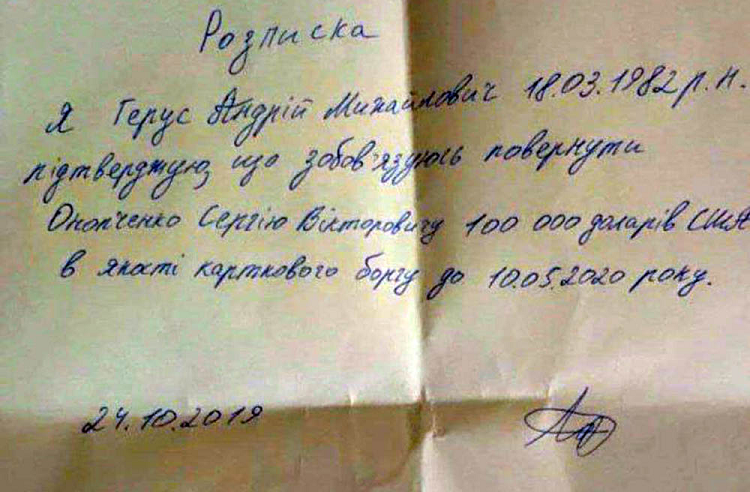 Розписка
Я Герус Андрій Михайлович 18.03.1982 р.н.
підтверджую, що зобов'язуюсь повернути
Онопченко Сергію Вікторовичу 100 000 доларів США
в якості карткового боргу до 10.05.2020 року.
24.10.2019